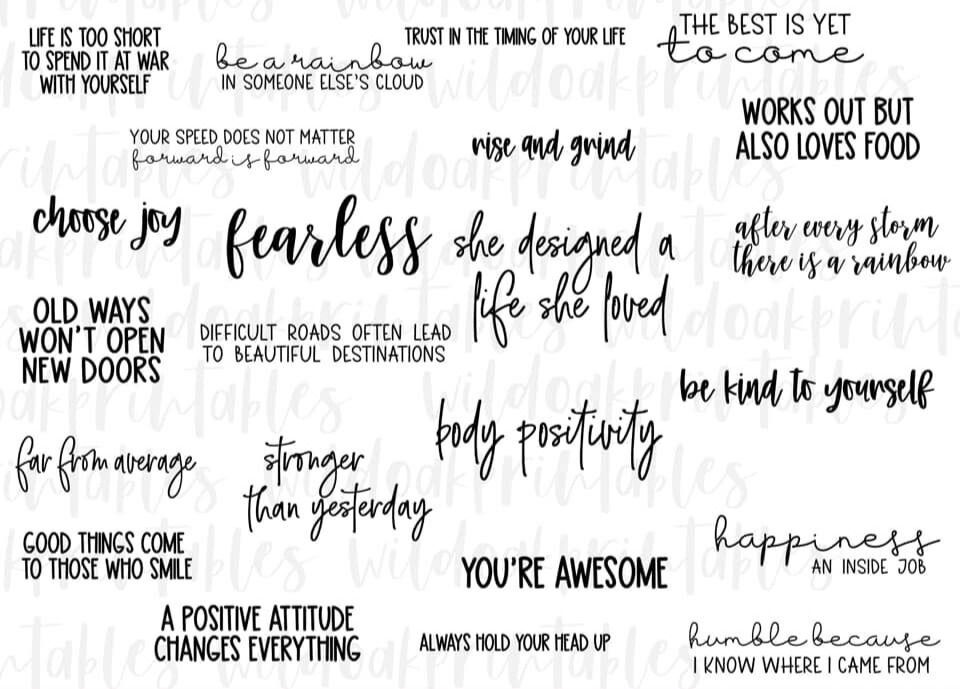 LIFE IS TOO SHORT
TO SPEND IT AT WAR
WITH YOURSELF
be a rainbow
IN SOMEONE ELSE'S CLOUD
TRUST IN THE TIMING OF YOUR LIFE
THE BEST IS YET
to come
YOUR SPEED DOES NOT MATTER
forward is forward
rise and grind
WORKS OUT BUT
ALSO LOVES FOOD
choose joy
fearless
she designed a
life she loved
after every storm
there is a rainbow
OLD WAYS
WON'T OPEN
NEW DOORS
DIFFICULT ROADS OFTEN LEAD
TO BEAUTIFUL DESTINATIONS
be kind to yourself
body positivity
far from average
stronger
than yesterday
GOOD THINGS COME
TO THOSE WHO SMILE
YOU'RE AWESOME
happiness
AN INSIDE JOB
A POSITIVE ATTITUDE
CHANGES EVERYTHING
ALWAYS HOLD YOUR HEAD UP
humble because
I KNOW WHERE I CAME FROM
wildoakprintables